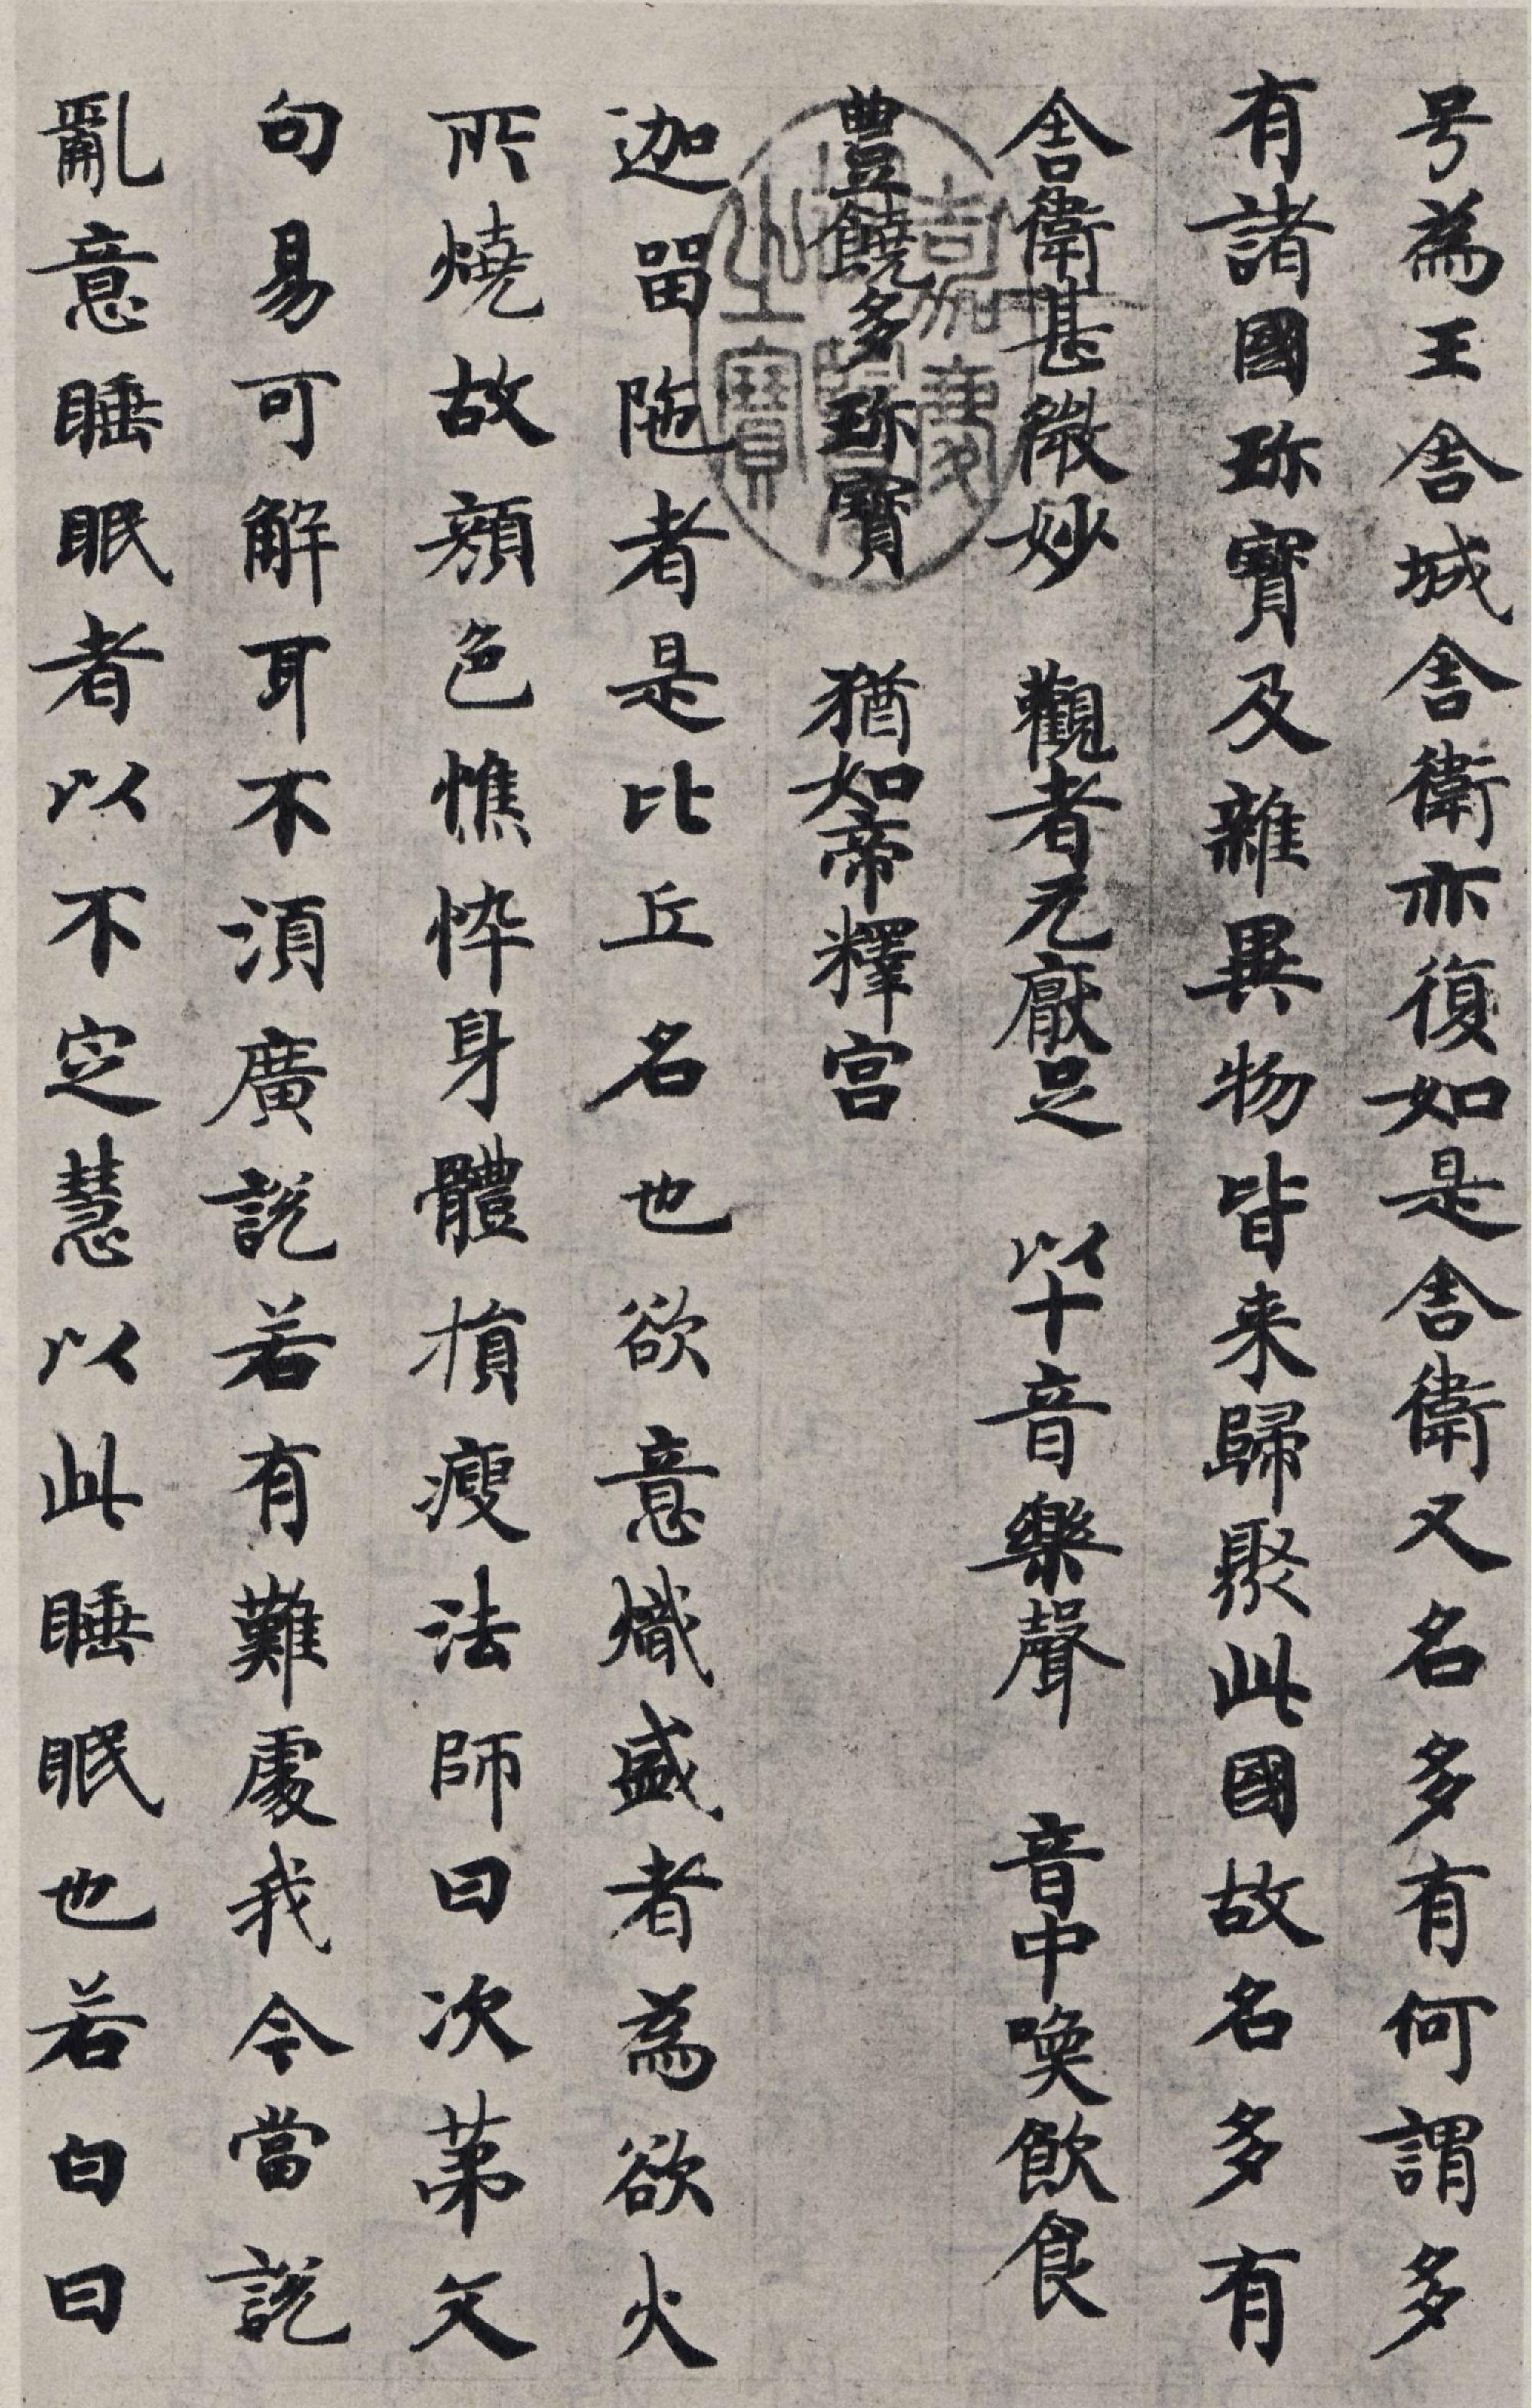 号為王舎城舎衛亦復如是舎衛又名多有何謂多
有諸國珎寳及雜異物皆来歸聚此國故名多有
舎衛甚微妙　觀者无厭足　以十音樂聲　音中喚飲食
豊饒多珎寳　猶如帝釋宫
迦留陁者是比丘名也欲意熾盛者為欲火
所燒故顔色憔悴身體損瘦法師曰次苐文
句易可解耳不湏廣説若有難處我今當説
亂意睡眠者以不定慧以此睡眠也若白日